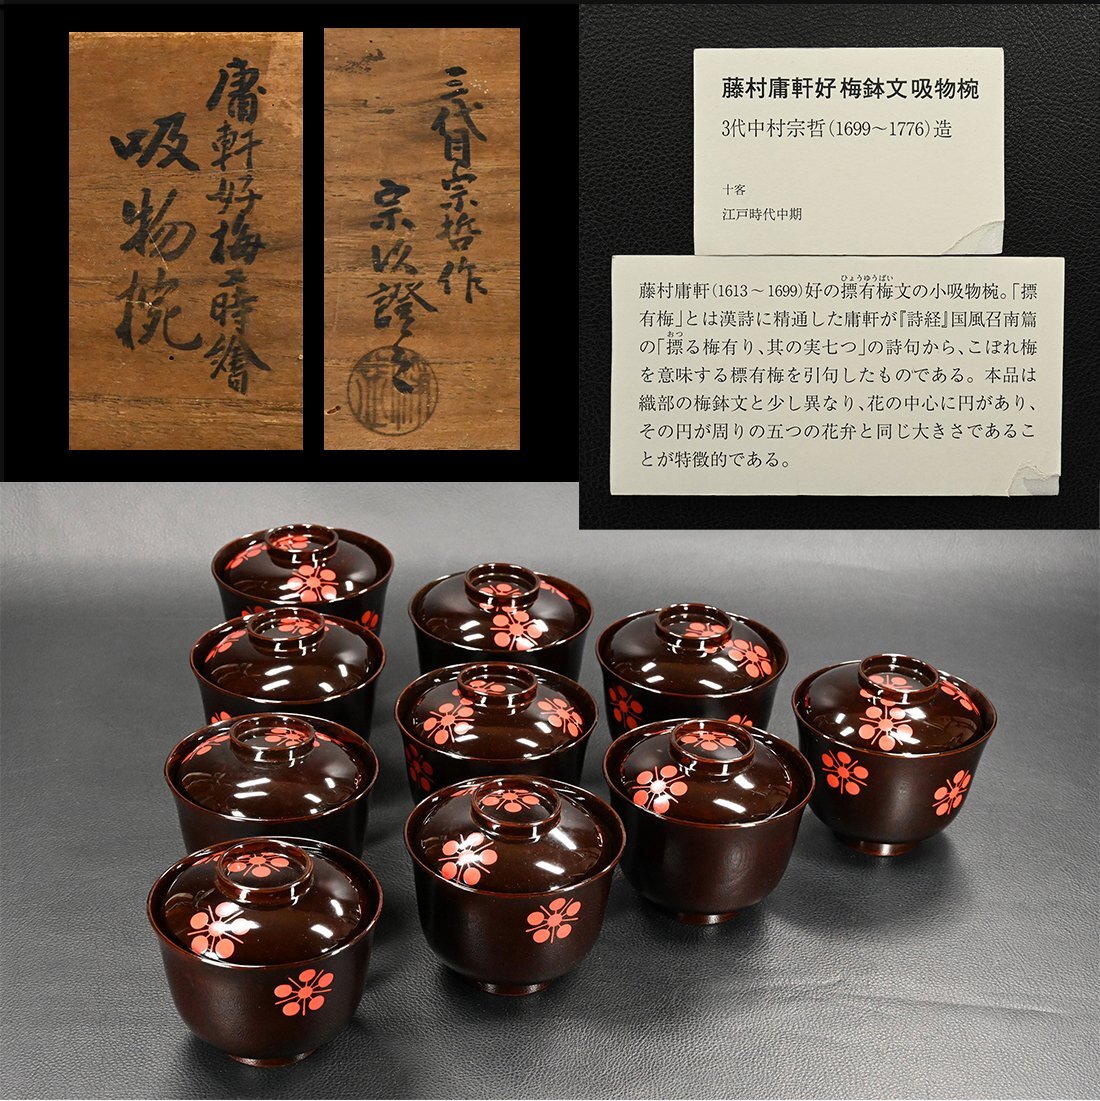 庸軒好梅二時繪
吸物椀
三代目宗哲作
宗以證之
藤村庸軒好 梅鉢文 吸物椀
3代中村宗哲(1699～1776)造
十客
江戸時代中期
藤村庸軒(1613～1699)好の摽有梅文の小吸物椀。「摽
ひょうゆうばい
有梅」とは漢詩に精通した庸軒が『詩経』国風召南篇
の「摽る梅有り、其の実七つ」の詩句から、こぼれ梅
おつ
を意味する標有梅を引句したものである。本品は
織部の梅鉢文と少し異なり、花の中心に円があり、
その円が周りの五つの花弁と同じ大きさであるこ
とが特徴的である。